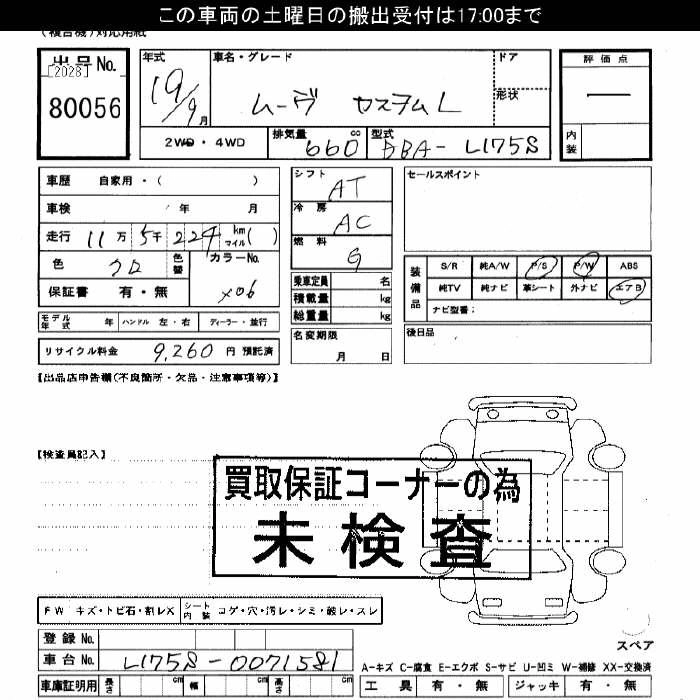 この車両の土曜日の搬出受付は17:00まで
(複合機)対応用紙
出品No. 年式 車名・グレード ドア 評価点
[2028] 19/9月 ムーヴ カスタムL 形状
80056 内装
2WD・4WD 排気量 660 cc 型式 DBA- L175S
車歴 自家用・( ) シフト AT セールスポイント
車検 年 月 冷房 AC
走行 11万5千229 km マイル( ) 燃料 G
色 クロ 色替 カラーNo. X06
装備品 S/R 純A/W P/S P/W ABS
保証書 有・無 乗車定員 名 純TV 純ナビ 革シート 外ナビ エアB
積載量 kg ナビ型番:
総重量 kg
モデル年式 年 ハンドル 左・右 ディーラー・並行 名変期限 月 日 後日品
リサイクル料金 9,260 円 預託済
【出品店申告欄(不良箇所・欠品・注意事項等)】
【検査員記入】
買取保証コーナーの為
未検査
FW キズ・トビ石・割レX シート内装 コゲ・穴・汚レ・シミ・破レ・スレ
スペア
登録No.
車台No. L175S-0071581
A-キズ C-腐食 E-エクボ S-サビ U-凹ミ W-補修 XX-交換済
車庫証明用 長さ cm 幅 cm 高さ cm 工具 有・無 ジャッキ 有・無